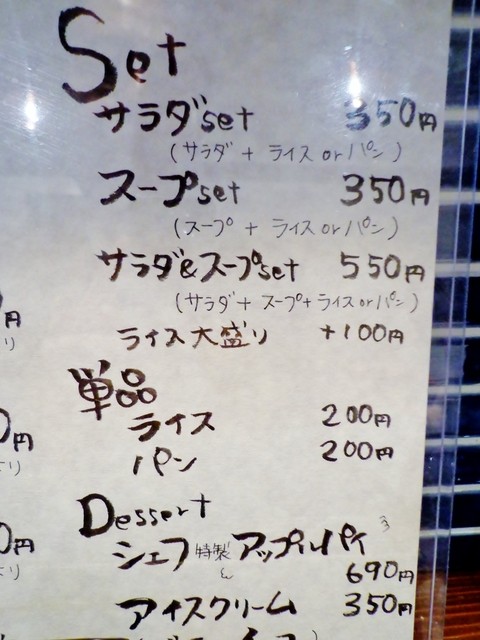 Set
サラダset 350円
(サラダ + ライス or パン)
スープset 350円
(スープ + ライス or パン)
サラダ&スープset 550円
(サラダ + スープ + ライス or パン)
ライス大盛り +100円
単品
ライス 200円
パン 200円
Dessert
シェフ特製アップルパイ
690円
アイスクリーム 350円
円
り
0円
り
0円
り